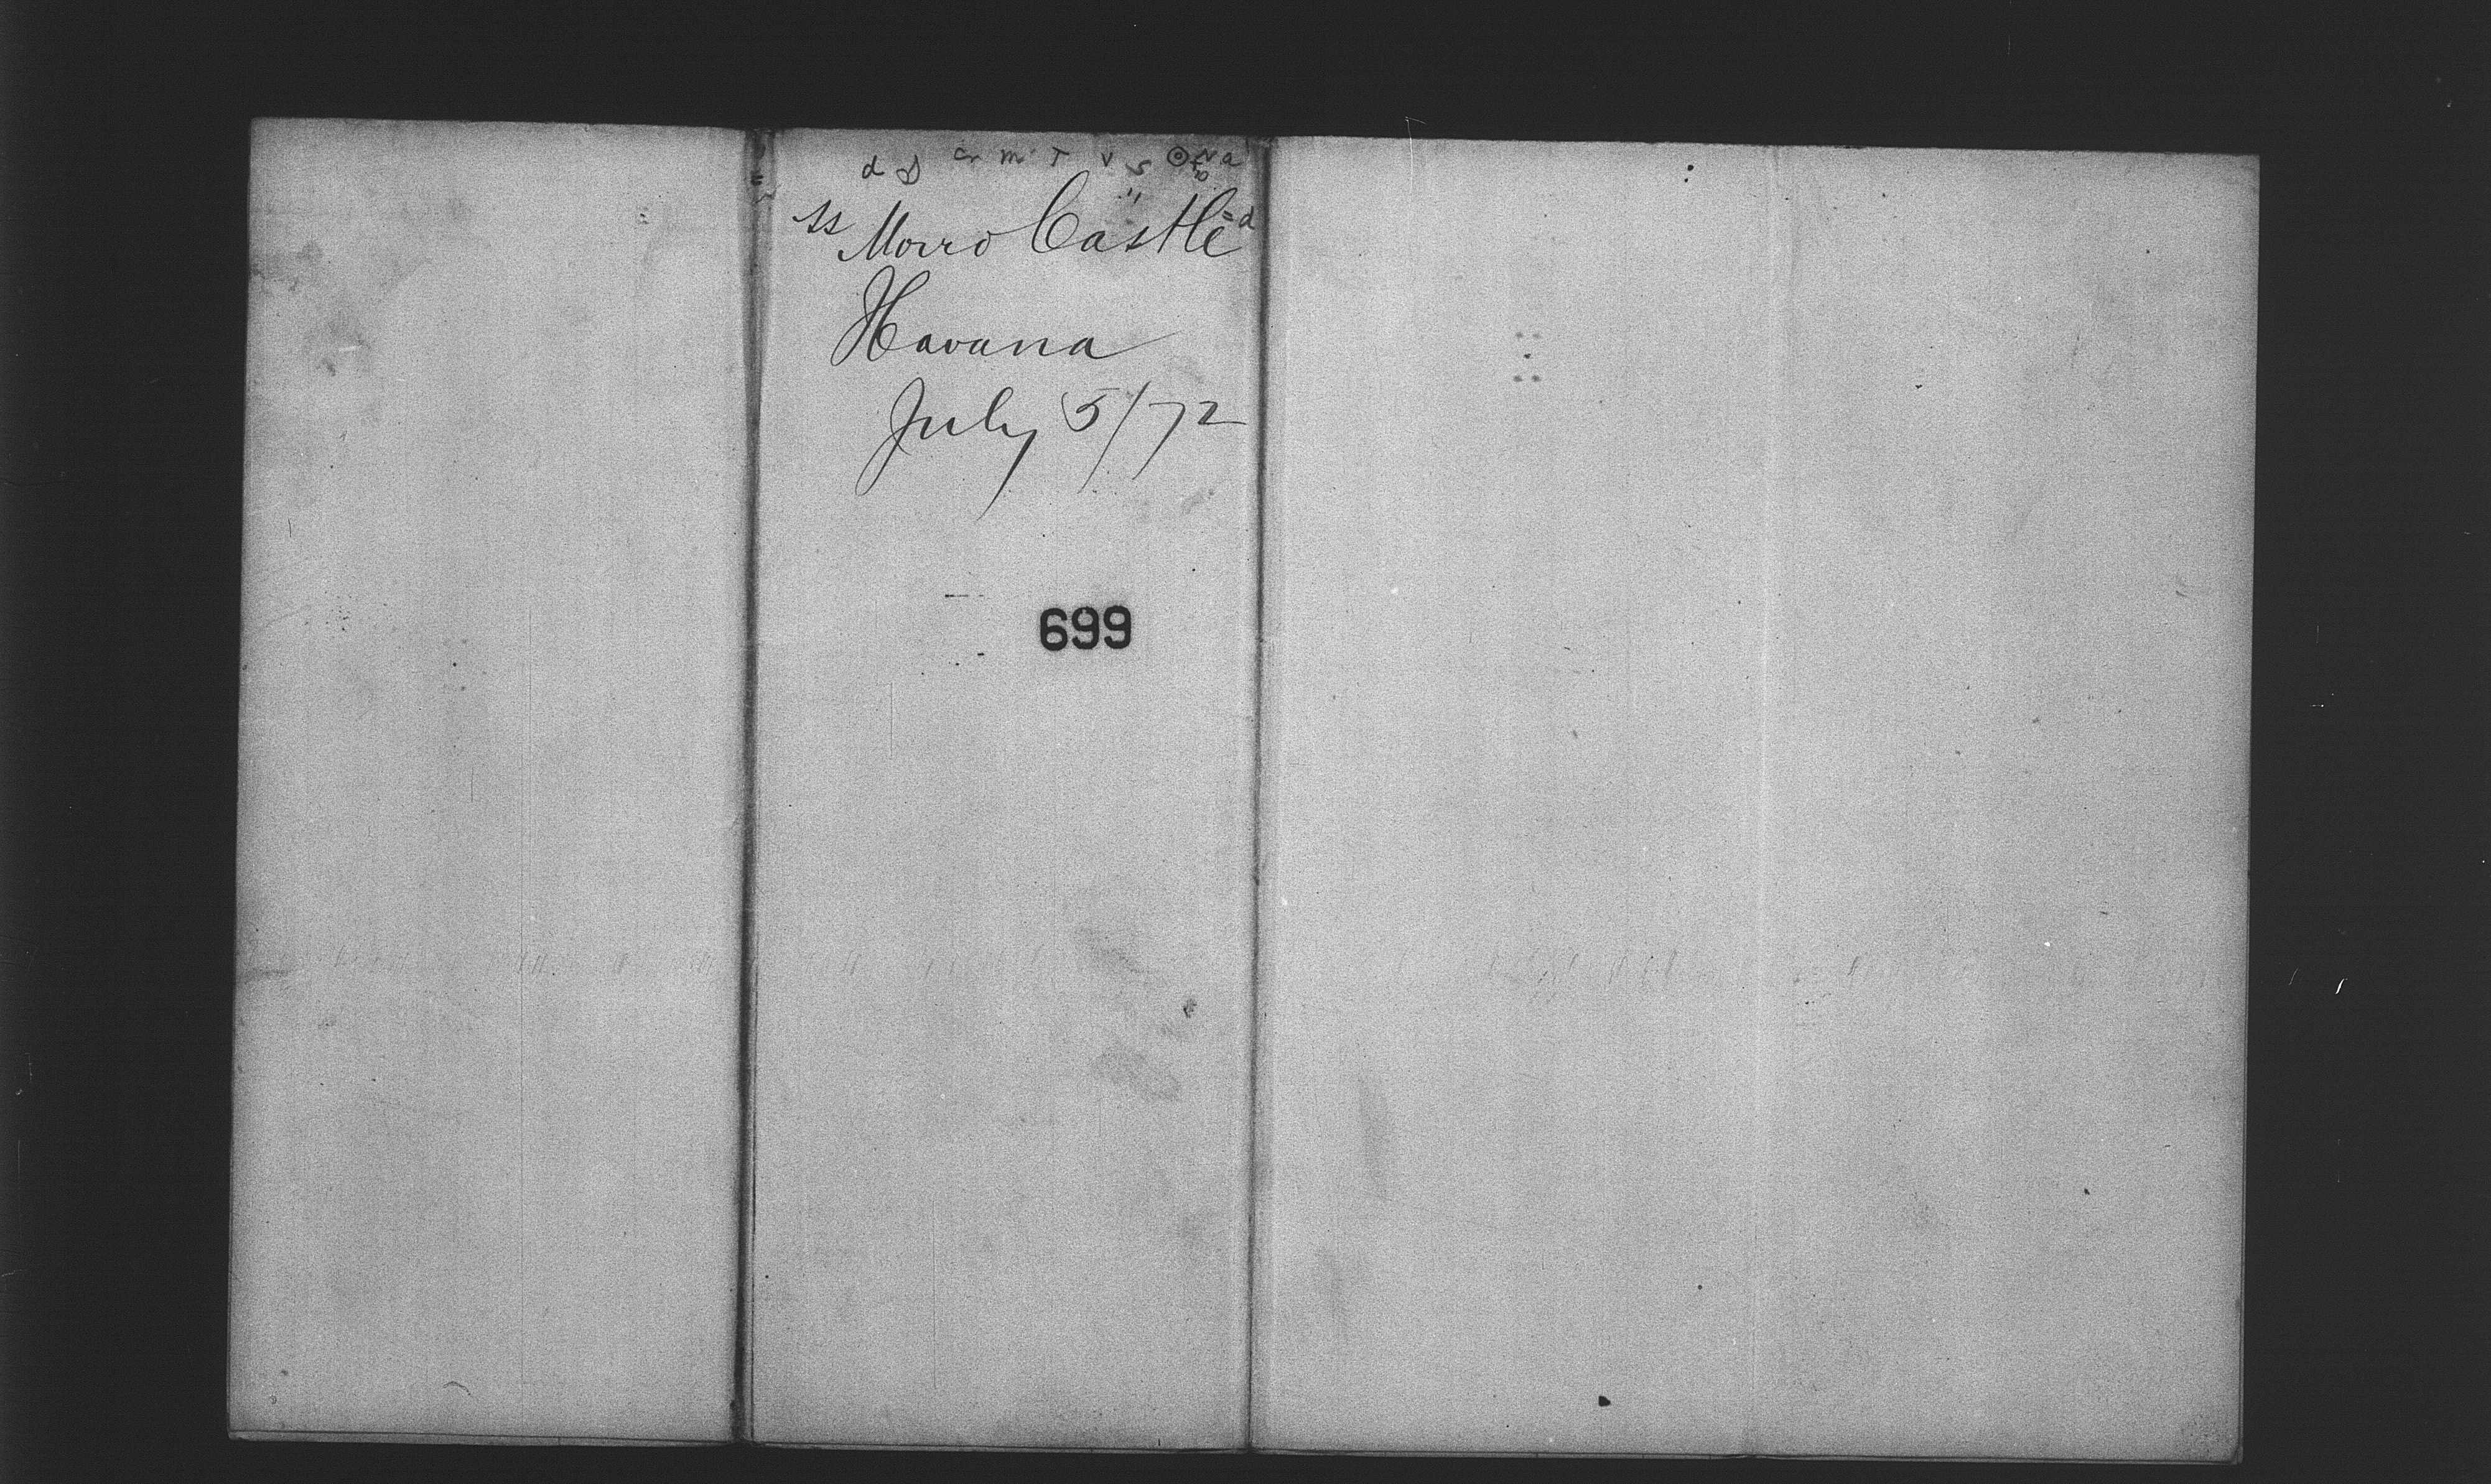 SS Morro Castle
Havana
July 5/72
699